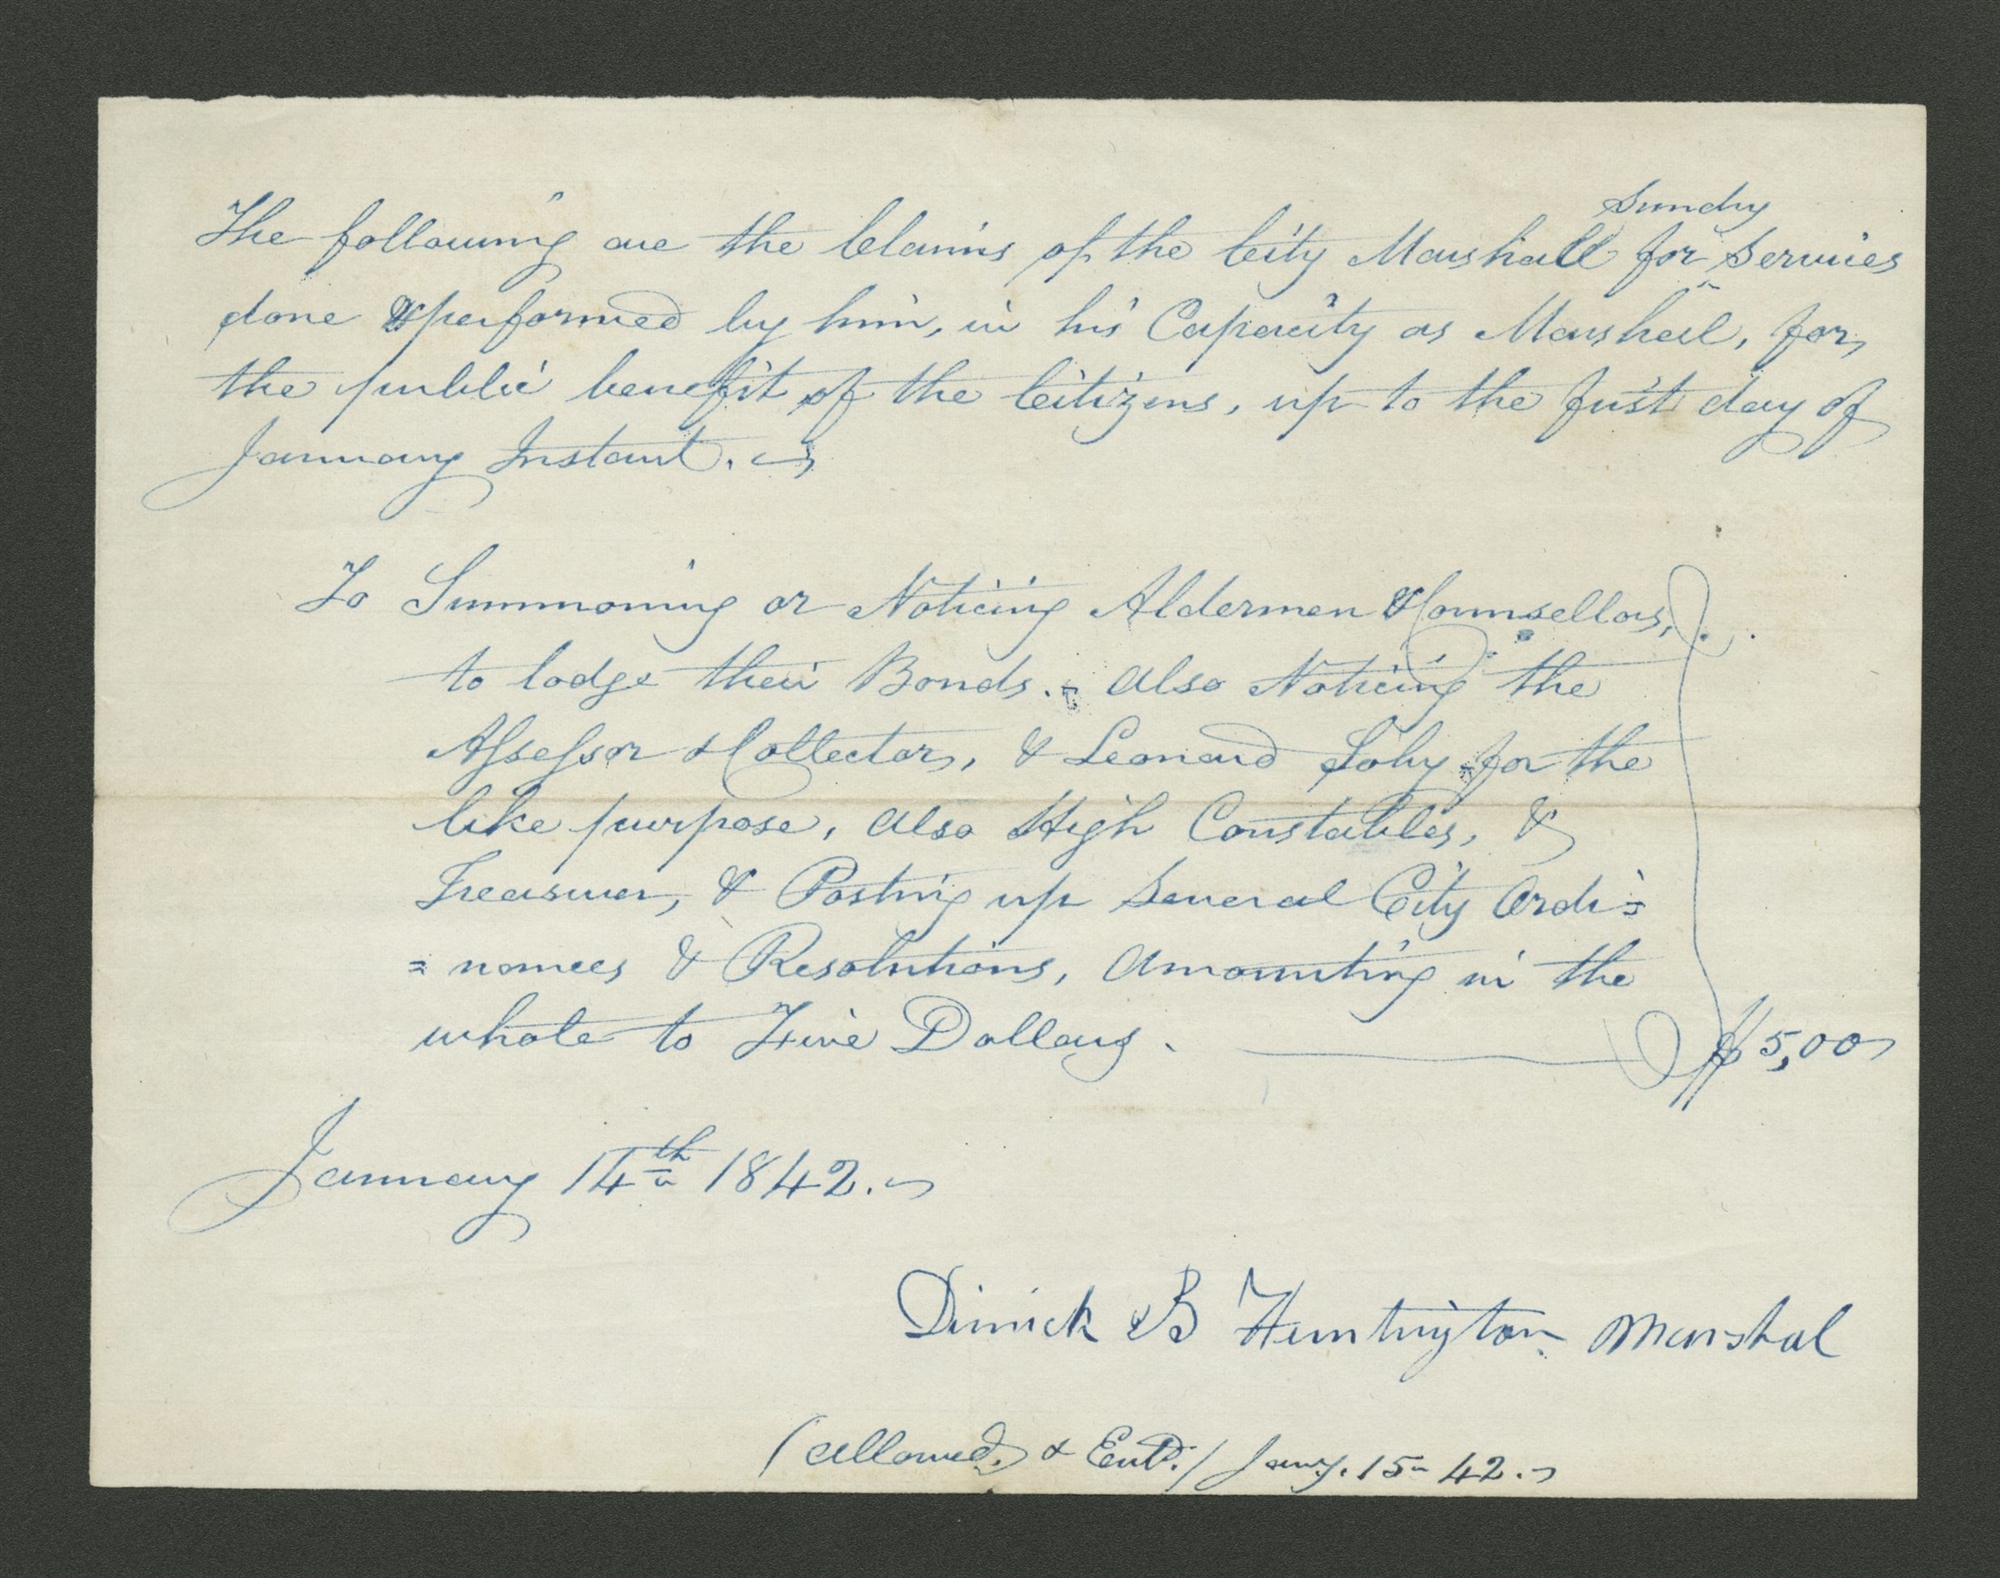 Sundry
The following are the Claims of the City Marshall for Services
done & performed by him, in his Capacity as Marshall, for
the public benefit of the Citizens, up to the first day of
January Instant.
To Summoning or Noticing Aldermen & Counsellors,
to lodge their Bonds. - also Noticing the
Assessor & Collector, & Leonard Soby for the
like purpose, also High Constables, &
Treasurer, & Posting up Several City Ordi=
=nances & Resolutions, amounting in the
whole to Five Dollars. $5,00
January 14th 1842.
Dimick B Huntington Marshal
(allowed, & Entd.) Jany. 15- 42.